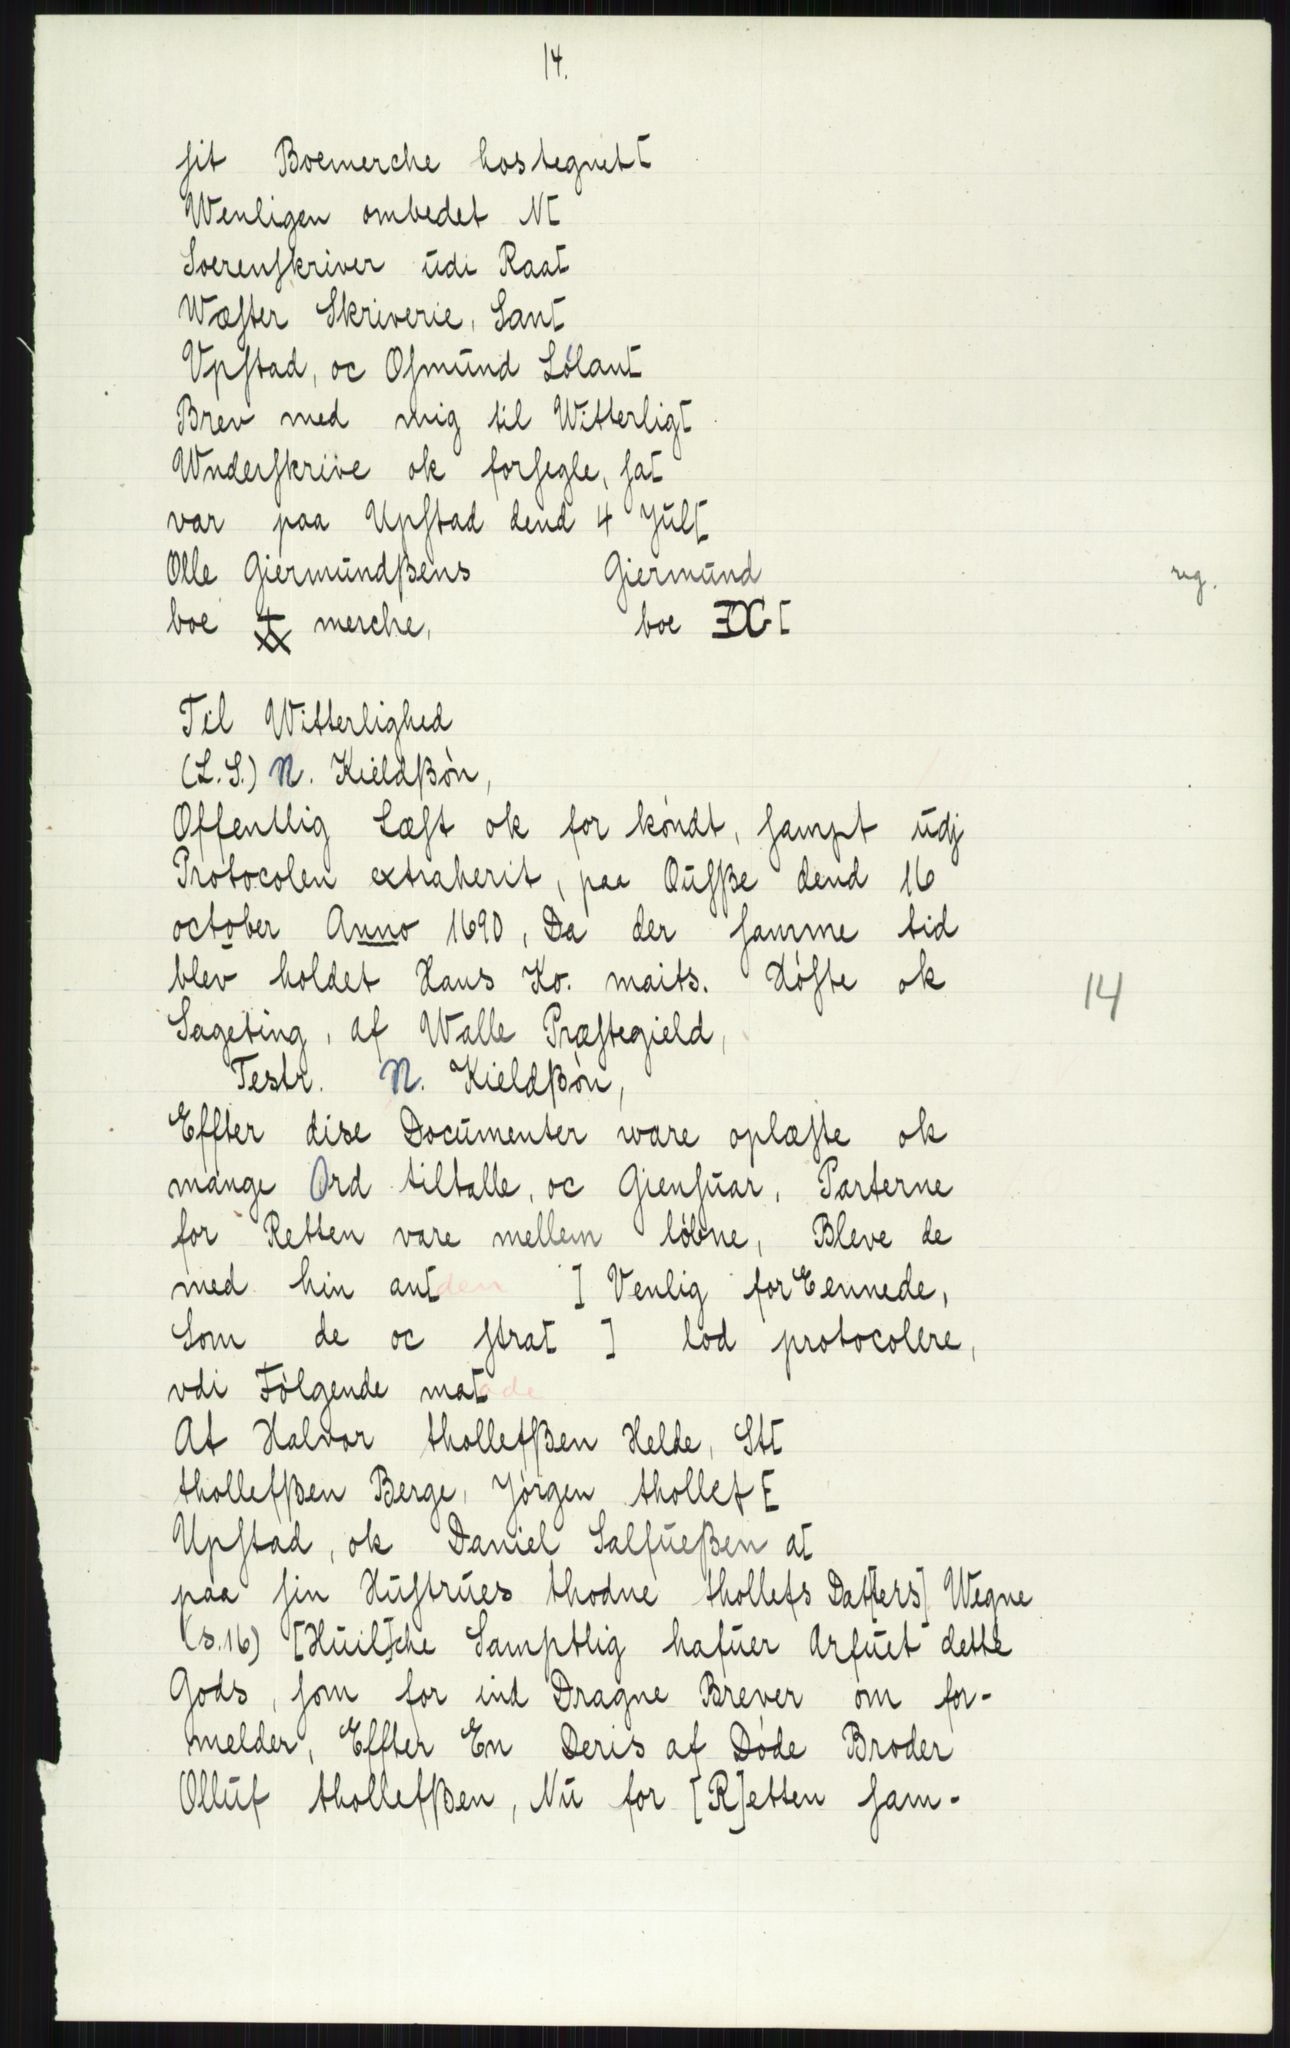 14.
sit Boemerche hostegnet[
Wenligen ombedet N[
Soerenskriver udi Raa[
Wæster Skriverie, San[
Vpstad, oc Osmund Lølan[
Brev med mig til Witterlig[
Wnderskrive ok forsegle, sa[
var paa Upstad dend 4 Jul[
Olle Giermundßens Giermund
boe merche, boe [
Til Witterlighed
(L.S.) N. Kieldßøn,
Offentlig Læst ok for køndt, sampt udj
Protocolen extraherit, paa Ousße dend 16
october Anno 1690, Da der samme tid
blev holdet Hans Ko. maits. Høste ok
Sageting, af Walle Præstegield,
Testr. N. Kieldßøn,
Effter dise Documenter ware oplæste ok
mange Ord tiltalle, oc Giensuar, Parterne
for Retten vare mellem løbne, Bleve de
med hin an[den ] Venlig forEennede,
Som de oc stra[ ] lod protocolere,
vdi Følgende ma[ade
At Halvor thollefßen Helde, St[
thollefßen Berge, Jørgen thollef[
Upstad, ok Daniel Salfueßen a[
paa sin Hustrues thodne thollefs Dat[ters] Wegne
(s.16) [Huil]che Samptlig hafuer Arfuet dette
Gods, som for ind Dragne Brever om for-
melder, Effter En Deris af Døde Broder
Olluf thollefßen, Nu for [R]etten sam-
rug.
14